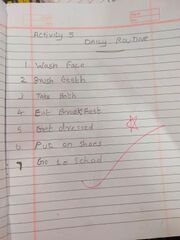 Activity 5
Daily Routine
1 Wash Face
2 Brush teeth
3 Take Bath
4 Eat Breakfast
5 Get dressed
6 Put on Shoes
7 Go to School